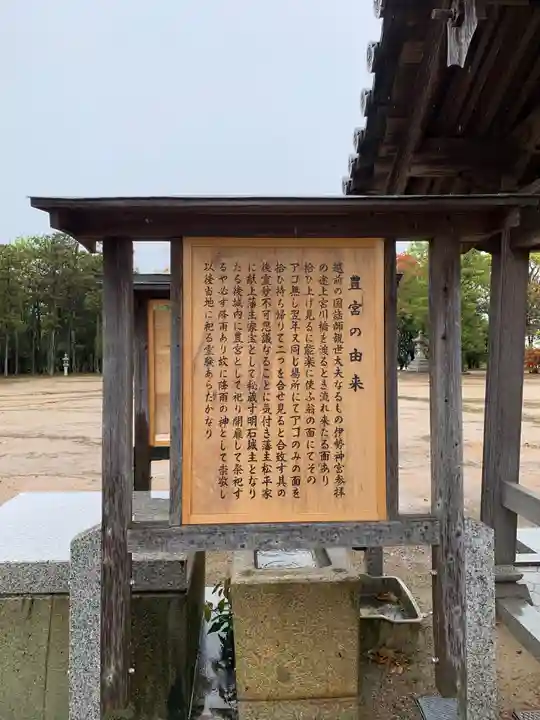 豊宮の由来
越前の国謡師観世大夫なるもの伊勢神宮参拝
の途上宮川橋を渡るとき流れ来たる面あり
拾ひ上げ見るに能楽に使ふ翁の面にてその
アゴ無し翌年又同じ場所にてアゴのみの面を
拾ひ持ち帰りて二つを合せ見ると合致す其の
後霊妙不可思議なることに気付き藩主松平家
に献上藩主家宝として秘蔵す明石城主となり
たる後城内に豊宮として祀り開扉して祭祀す
るや必ず降雨あり故に降雨の神として崇敬し
以後当地に祀る霊験あらたかなり